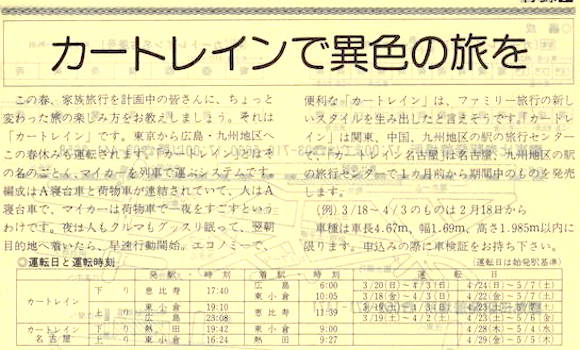 カートレインで異色の旅を
この春、家族旅行を計画中の皆さんに、ちょっと
変わった旅の楽しみ方をお教えしましょう。それは
「カートレイン」です。東京から広島・九州地区へ
この春休みも運転されます。「カートレイン」とはそ
の名のごとく、マイカーを列車で運ぶシステムです。
編成はA寝台車と荷物車が連結されていて、人はA
寝台車で、マイカーは荷物車で一夜をすごすという
わけです。夜は人もクルマもグッスリ眠って、翌朝
目的地へ着いたら、早速行動開始。エコノミーで、
便利な「カートレイン」は、ファミリー旅行の新し
いスタイルを生み出したと言えそうです。「カートレ
イン」は関東、中国、九州地区の駅の旅行センター
で、「カートレイン名古屋」は名古屋、九州地区の駅
の旅行センターで1カ月前から期間中のものを発売
します。
(例) 3/18〜4/3のものは2月18日から
車種は車長4.67m、幅1.69m、高さ1.985m以内に
限ります。申込みの際に車検証をお持ち下さい。
◎運転日と運転時刻 (運転日は始発駅基準)
発駅・時刻 着駅・時刻 運転日
カートレイン 下り 恵比寿 17:40 広島 6:00 3/20(日)〜4/3(日) 4/24(日)〜5/7(土)
東小倉 10:05 3/18(金)〜4/3(日) 4/23(土)〜5/7(土)
上り 東小倉 19:10 恵比寿 11:39 3/18(金)〜4/3(日) 4/23(土)〜5/7(土)
広島 23:08 3/19(土)〜4/2(土) 4/23(土)〜5/6(金)
カートレイン名古屋 下り 熱田 19:42 東小倉 9:00 4/28(木)〜5/4(水)
上り 東小倉 16:24 熱田 9:27 4/29(金)〜5/5(木)